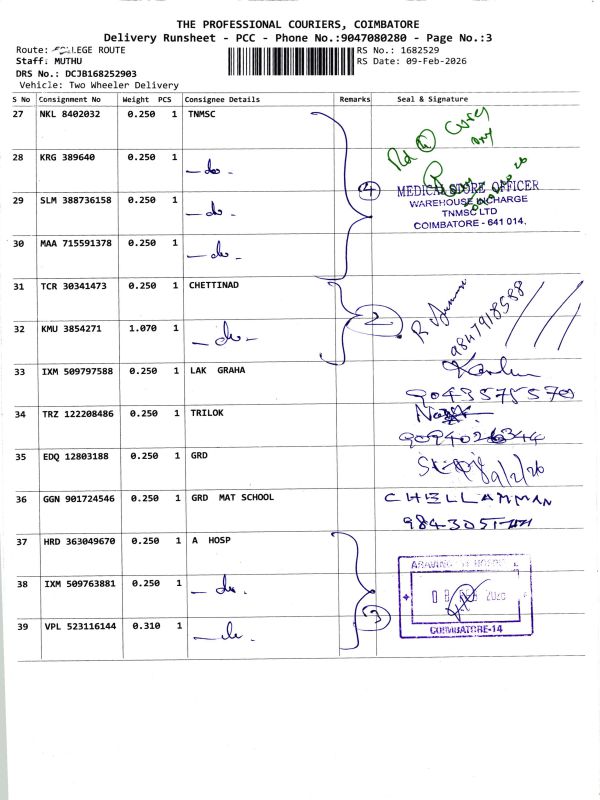 THE PROFESSIONAL COURIERS, COIMBATORE
Delivery Runsheet - PCC - Phone No.:9047080280 - Page No.:3
Route: COLLEGE ROUTE RS No.: 1682529
Staff: MUTHU RS Date: 09-Feb-2026
DRS No.: DCJB168252903
Vehicle: Two Wheeler Delivery
S No Consignment No Weight PCS Consignee Details Remarks Seal & Signature
27 NKL 8402032 0.250 1 TNMSC
28 KRG 389640 0.250 1 -do-
29 SLM 388736158 0.250 1 -do-
4
MEDICAL STORE OFFICER
WAREHOUSE INCHARGE
TNMSC LTD
COIMBATORE - 641 014.
30 MAA 715591378 0.250 1 -do-
31 TCR 30341473 0.250 1 CHETTINAD
2
9847918588
32 KMU 3854271 1.070 1 -do-
33 IXM 509797588 0.250 1 LAK GRAHA
9043575570
34 TRZ 122208486 0.250 1 TRILOK
35 EDQ 12803188 0.250 1 GRD
9/2/26
36 GGN 901724546 0.250 1 GRD MAT SCHOOL CHELLAMMAN
37 HRD 363049670 0.250 1 A HOSP
38 IXM 509763881 0.250 1 -do-
3
COIMBATORE-14
39 VPL 523116144 0.310 1 -do-